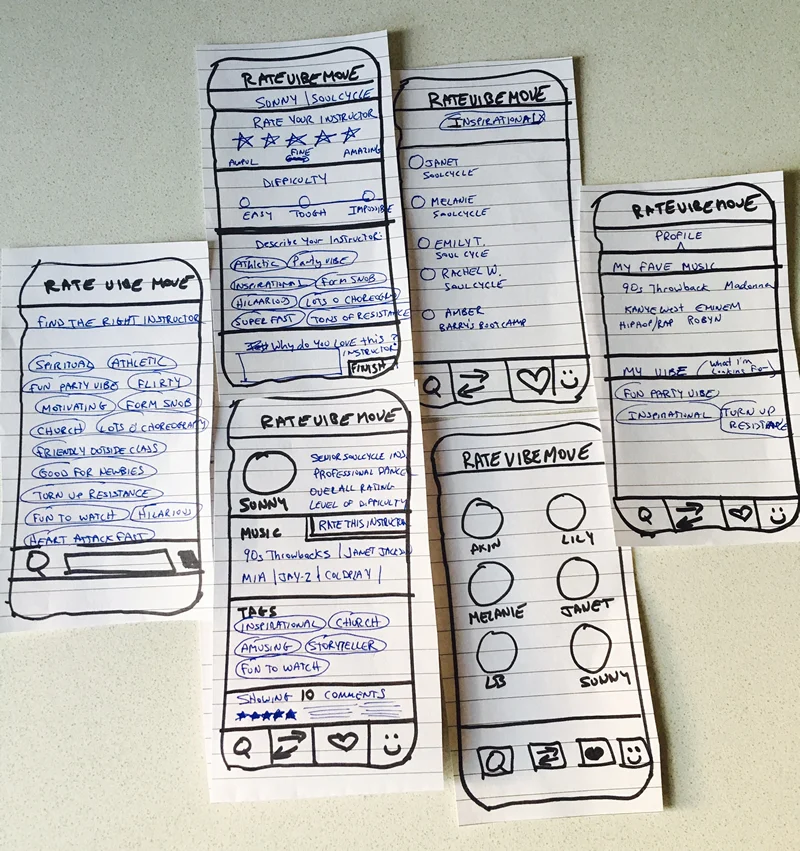 RATE VIBE MOVE
FIND THE RIGHT INSTRUCTOR
SPIRITUAL ATHLETIC
FUN PARTY VIBE FLIRTY
MOTIVATING FORM SNOB
CHURCH LOTS O' CHOREOGRAPHY
FRIENDLY OUTSIDE CLASS
GOOD FOR NEWBIES
TURN UP RESISTANCE
FUN TO WATCH HILARIOUS
HEART ATTACK FAST
RATEVIBEMOVE
SONNY | SOULCYCLE
RATE YOUR INSTRUCTOR
AWFUL FINE AMAZING
DIFFICULTY
EASY TOUGH IMPOSSIBLE
Describe Your Instructor:
Athletic Party VIBE
INSPIRATIONAL FORM SNOB
HILARIOUS LOTS O CHOREOGRA
SUPER FAST TONS OF RESISTANCE
Why do you Love this ?
INSTRUCTOR
FINISH
RATEVIBEMOVE
SUNNY
SENIOR SOULCYCLE INS
PROFESSIONAL DANCE
OVERALL RATING
LEVEL OF DIFFICULTY
RATE THIS INSTRUCTOR
MUSIC
90s Throwbacks | JANET JACKSON
MIA | JAY-Z | COLDPLAY |
TAGS
INSPIRATIONAL CHURCH
AMUSING STORYTELLER
FUN TO WATCH
SHOWING 10 COMMENTS
RATEVIBEMOVE
INSPIRATIONAL X
JANET
SOULCYCLE
MELANIE
SOULCYCLE
EMILY T.
SOUL CYCLE
RACHEL W.
SOULCYCLE
AMBER
BARRY'S BOOTCAMP
RATEVIBEMOVE
AKIN LILY
MELANIE JANET
LSB SUNNY
RATEVIBEMOVE
PROFILE
MY FAVE MUSIC
90s Throwback Madonna
KANYE WEST EMINEM
HIPHOP/RAP ROBYN
MY VIBE (What I'm Looking For)
FUN PARTY VIBE
INSPIRATIONAL TURN UP
RESISTANCE